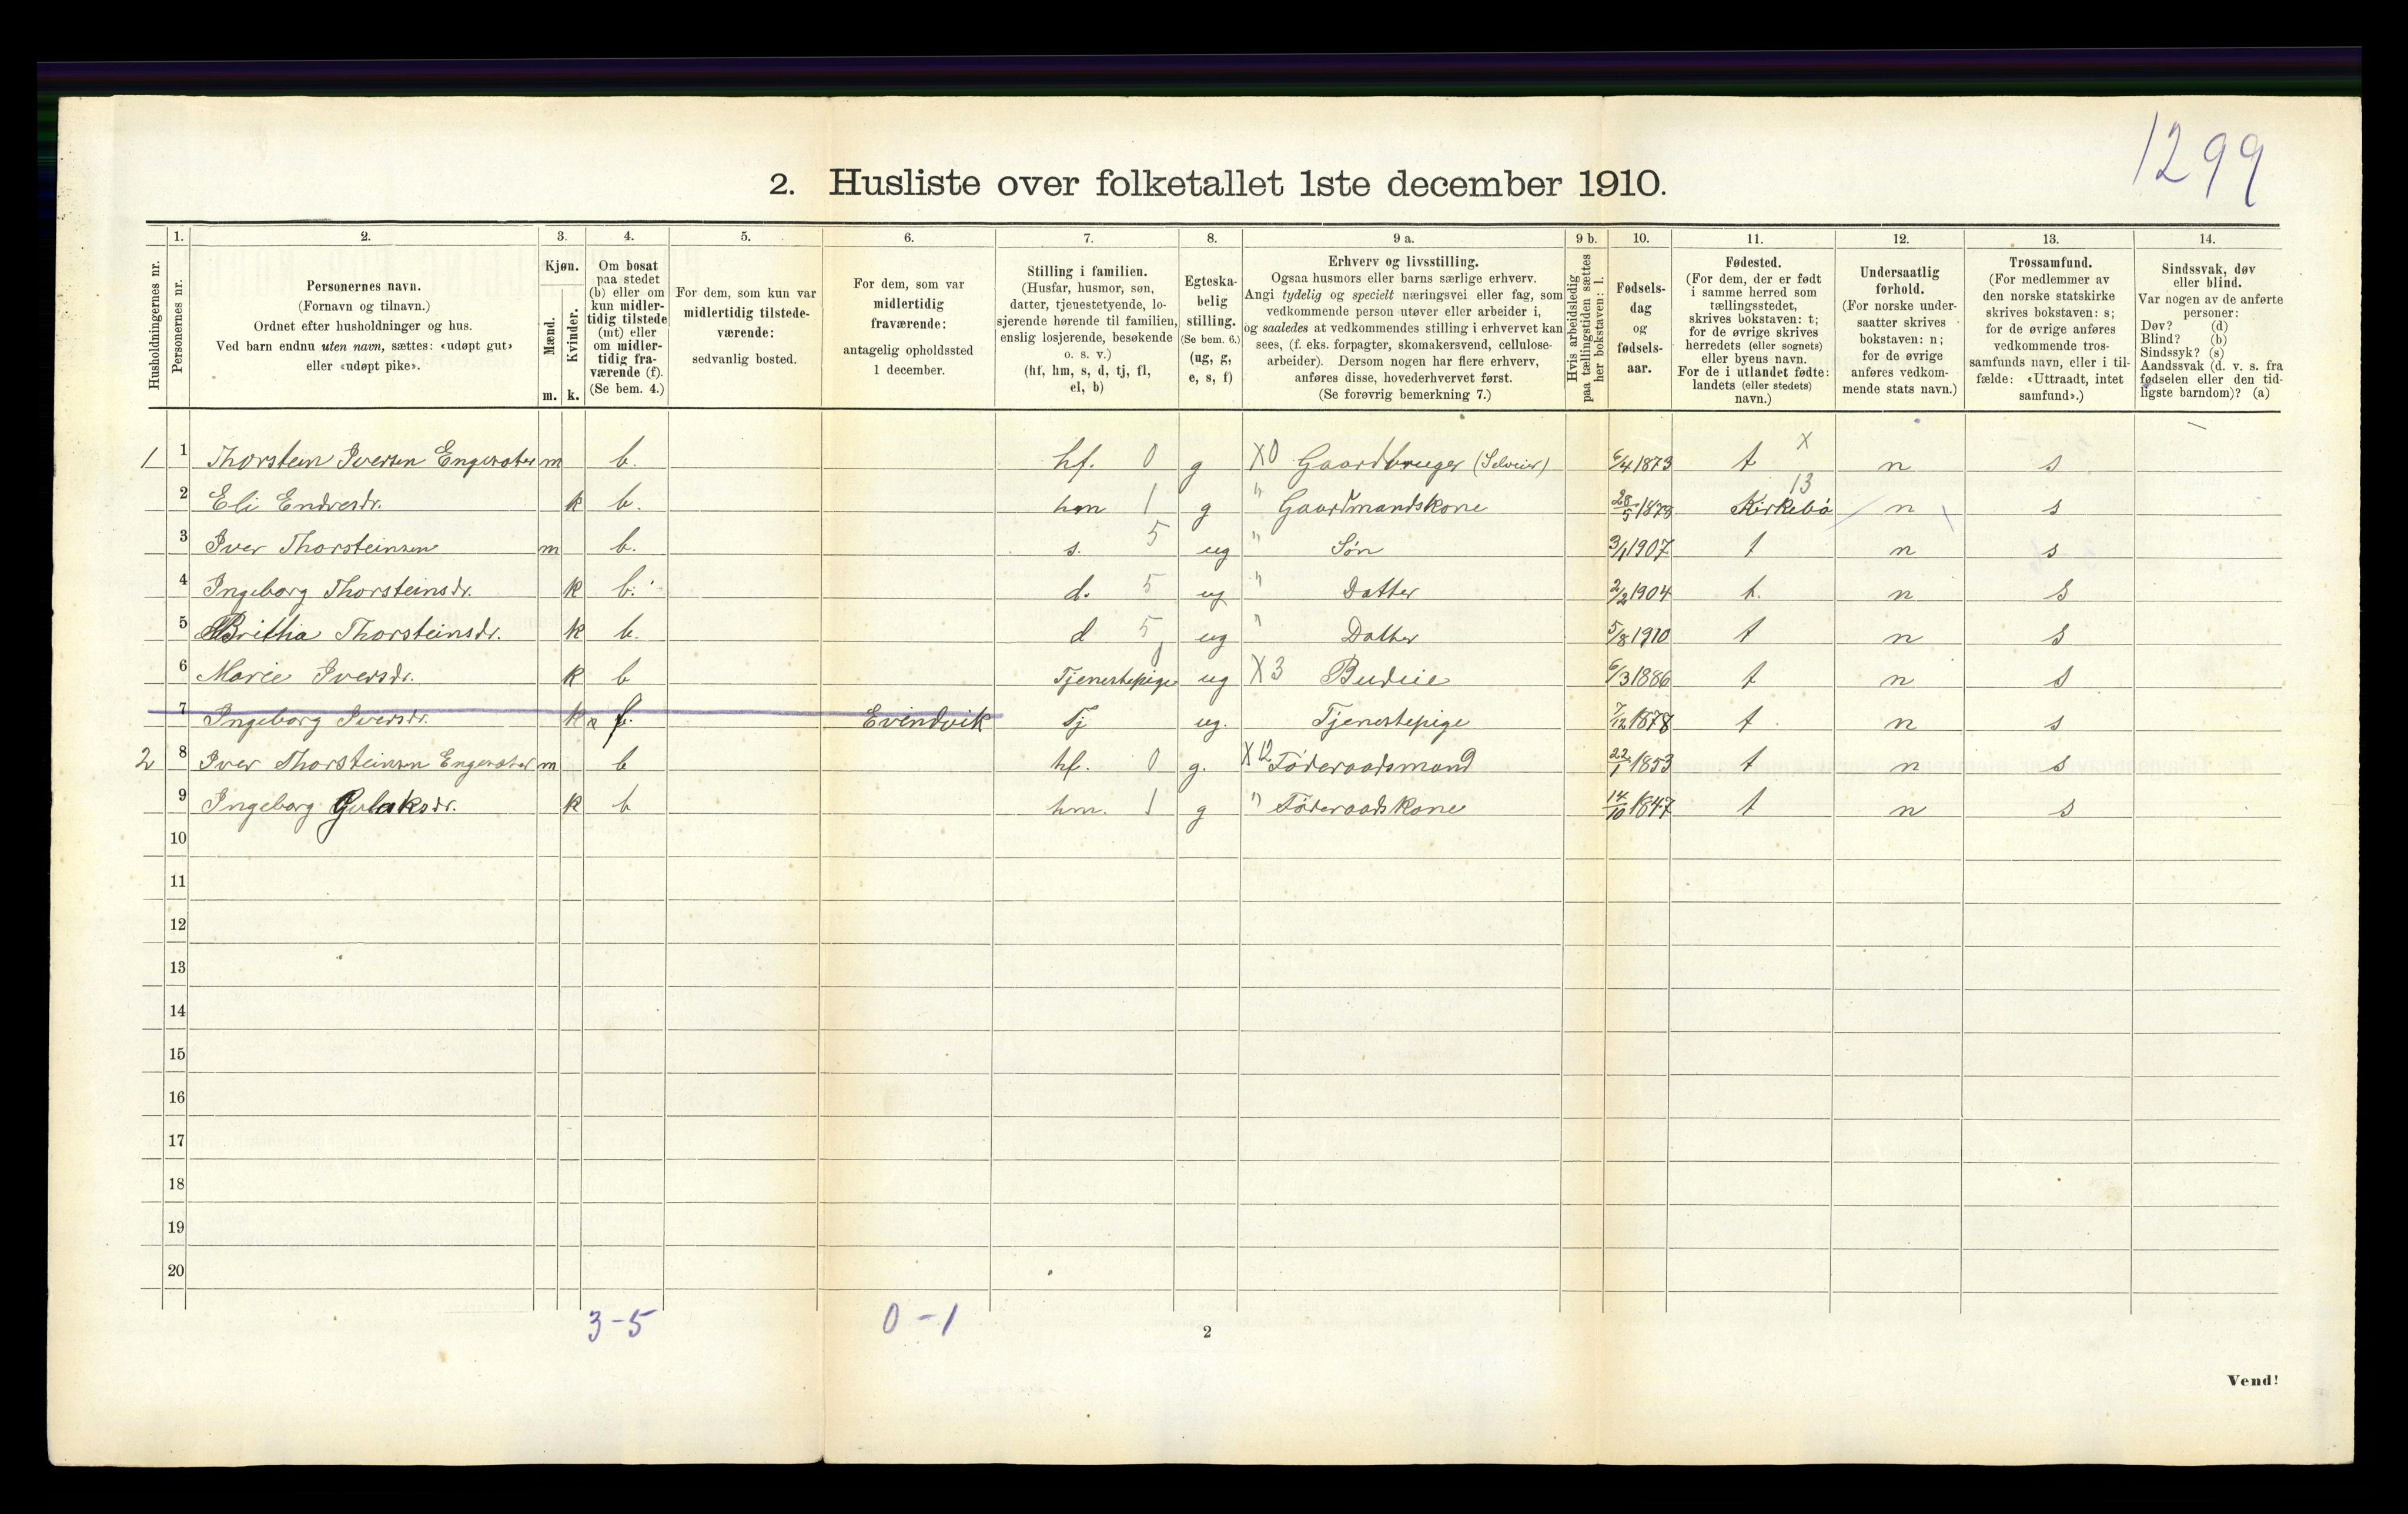 1299
2. Husliste over folketallet 1ste december 1910.
Husholdningernes nr.
1. Personernes nr.
2. Personernes navn.
(Fornavn og tilnavn.)
Ordnet efter husholdninger og hus.
Ved barn endnu uten navn, sættes: «udøpt gut»
eller «udøpt pike».
3. Kjøn.
Mænd. m.
Kvinder. k.
4. Om bosat
paa stedet
(b) eller om
kun midler-
tidig tilstede
(mt) eller
om midler-
tidig fra-
værende (f).
(Se bem. 4.)
5. For dem, som kun var
midlertidig tilstede-
værende:
sedvanlig bosted.
6. For dem, som var
midlertidig
fraværende:
antagelig opholdssted
1 december.
7. Stilling i familien.
(Husfar, husmor, søn,
datter, tjenestetyende, lo-
sjerende hørende til familien,
enslig losjerende, besøkende
o. s. v.)
(hf, hm, s, d, tj, fl,
el, b)
8. Egteska-
belig
stilling.
(Se bem. 6.)
(ug, g,
e, s, f)
9 a. Erhverv og livsstilling.
Ogsaa husmors eller barns særlige erhverv.
Angi tydelig og specielt næringsvei eller fag, som
vedkommende person utøver eller arbeider i,
og saaledes at vedkommendes stilling i erhvervet kan
sees, (f. eks. forpagter, skomakersvend, cellulose-
arbeider). Dersom nogen har flere erhverv,
anføres disse, hovederhvervet først.
(Se forøvrig bemerkning 7.)
9 b. Hvis arbeidsledig
paa tællingstiden sættes
her bokstaven: l.
10. Fødsels-
dag
og
fødsels-
aar.
11. Fødested.
(For dem, der er født
i samme herred som
tællingsstedet,
skrives bokstaven: t;
for de øvrige skrives
herredets (eller sognets)
eller byens navn.
For de i utlandet fødte:
landets (eller stedets)
navn.)
12. Undersaatlig
forhold.
(For norske under-
saatter skrives
bokstaven: n;
for de øvrige
anføres vedkom-
mende stats navn.)
13. Trossamfund.
(For medlemmer av
den norske statskirke
skrives bokstaven: s;
for de øvrige anføres
vedkommende tros-
samfunds navn, eller i til-
fælde: «Uttraadt, intet
samfund».)
14. Sindssvak, døv
eller blind.
Var nogen av de anførte
personer:
Døv? (d)
Blind? (b)
Sindssyk? (s)
Aandssvak (d. v. s. fra
fødselen eller den tid-
ligste barndom)? (a)
1 1 Thorstein Iversen Engesæter m b. hf. 0 g X0 Gaardbruger (Selveier) 6/4 1873 t x n s
2 Eli Endresdr. k b. hm 1 g " Gaardmandskone 28/5 1873 Kirkebø 13 n s
3 Iver Thorsteinsen m b. s. 5 ug " Søn 3/1 1907 t n s
4 Ingeborg Thorsteinsdr. k b. d. 5 ug " Datter 2/2 1904 t. n s
5 Britha Thorsteinsdr. k b. d 5 ug " Datter 5/8 1910 t n s
6 Marie Iversdr. k b Tjenestepige ug X3 Budeie 6/3 1886 t n s
7 Ingeborg Iversdr. k f. Evindvik Tj ug. Tjenestepige 7/12 1878 t n s
2 8 Iver Thorsteinsen Engesæter m b hf. 0 g. X12 Føderaadsmand 22/1 1853 t n s
9 Ingeborg Gulaksdr. k b hm. 1 g " Føderaadskone 14/10 1847 t n s
10
11
12
13
14
15
16
17
18
19
20
3-5 0-1
2
Vend!